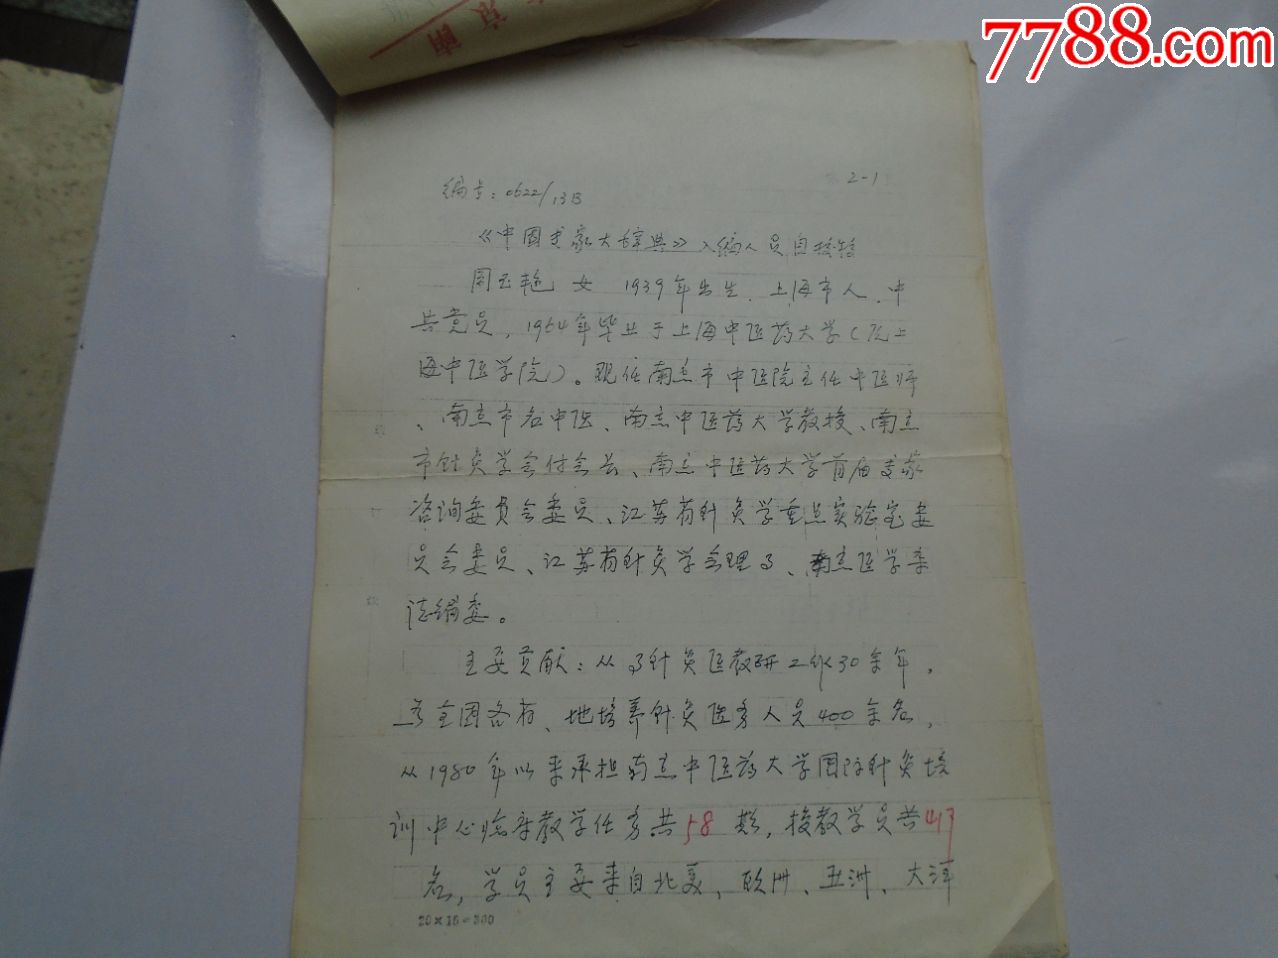 7788.com
南京
2-1
编号：0622/13B
《中国专家大辞典》入编人员自按稿
周玉艳 女 1939年出生．上海市人．中
共党员，1964年毕业于上海中医药大学（沅上
海中医学院）。现任南京市中医院主任中医师
、南京市名中医、南京中医药大学教授、南京
市针灸学会付会长、南京中医药大学首届专家
咨询委员会委员、江苏省针灸学重点实验室委
员会委员、江苏省针灸学会理事、南京医学杂
志编委。
主要贡献：从事针灸医教研工作30余年，
为全国各省、地培养针灸医务人员400余名，
从1980年以来承担南京中医药大学国际针灸培
训中心临床教学任务共58期，授教学员共417
名，学员主要来自北美、欧洲、亚洲、大洋
20×15=300